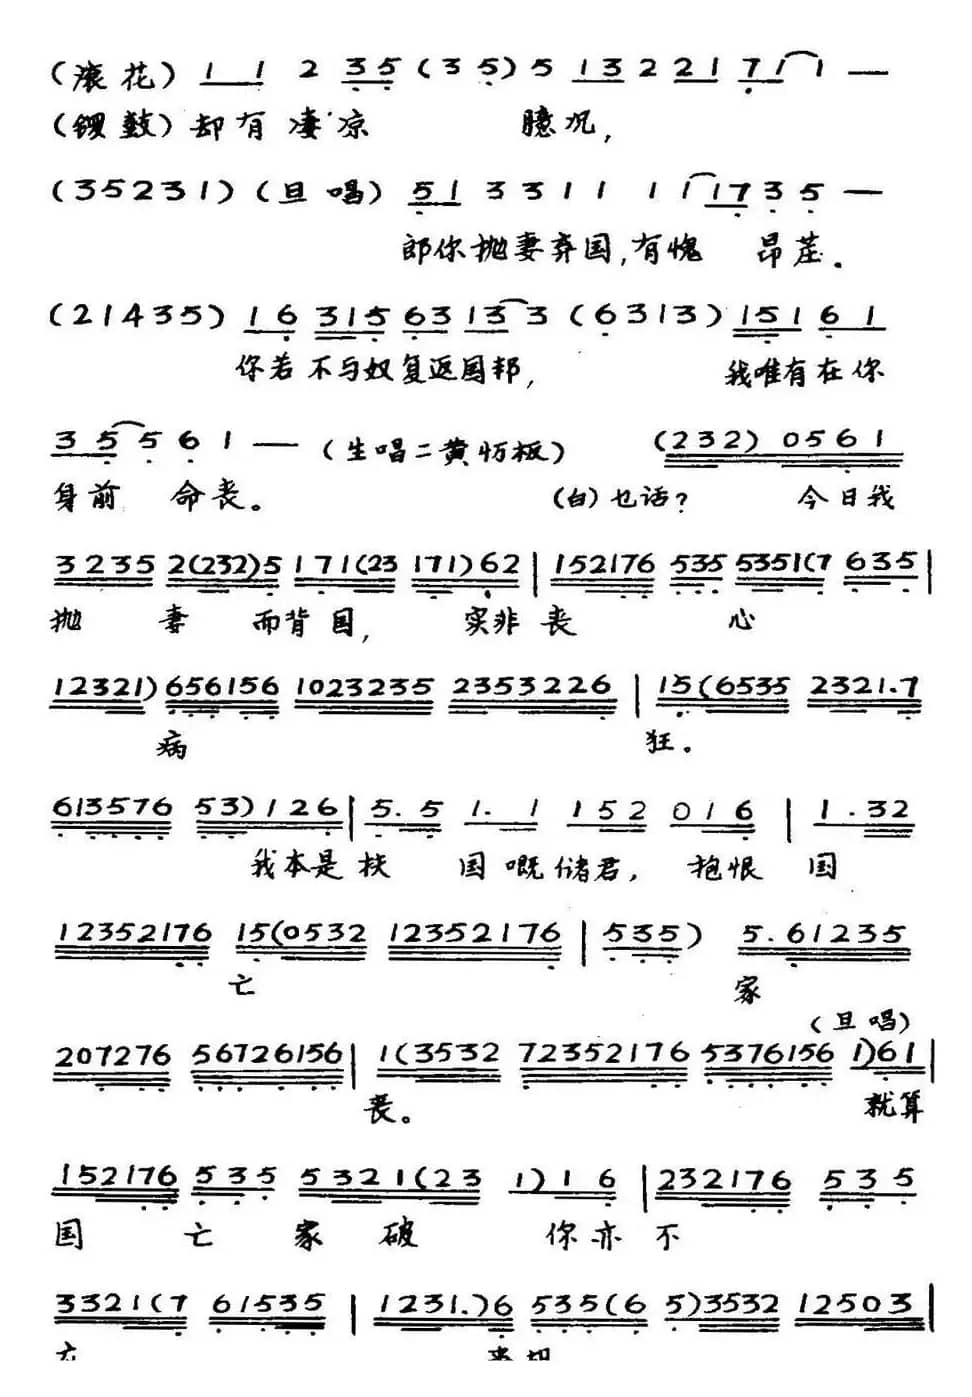 (滚花) 1 1 2 3 5 (3 5) 5 1 3 2 2 1 7 1 1 —
(锣鼓) 却有凄凉 臆况,
(35231) (旦唱) 5 1 3 3 1 1 1 1 1 7 3 5 —
郎你抛妻弃国,有愧 昂茔.
(21435) 1 6 3 1 5 6 3 1 3 3 (6313) 1 5 1 6 1
你若不与奴复返国邦, 我唯有在你
3 5 5 6 1 — (生唱二黄忉板) (232) 0 5 6 1
身前 命丧。 (白)乜话? 今日我
3235 2(232)5 171(23 171)62 | 152176 535 5351(7 635 |
抛 妻 而背国, 实非丧 心
12321) 656156 1023235 2353226 | 15(6535 2321.7
病 狂。
613576 53)126 | 5.5 1.1 152 016 | 1.32
我本是扶 国嘅储君, 抱恨 国
12352176 15(0532 12352176 | 535) 5.61235
亡 家
(旦唱)
207276 56726156 | 1(3532 72352176 5376156 1)61 |
丧。 就算
152176 535 5321(23 1)16 | 232176 535
国 亡 家 破 你亦不
3321(7 61535 | 1231.)6 535(6 5)3532 12503 |